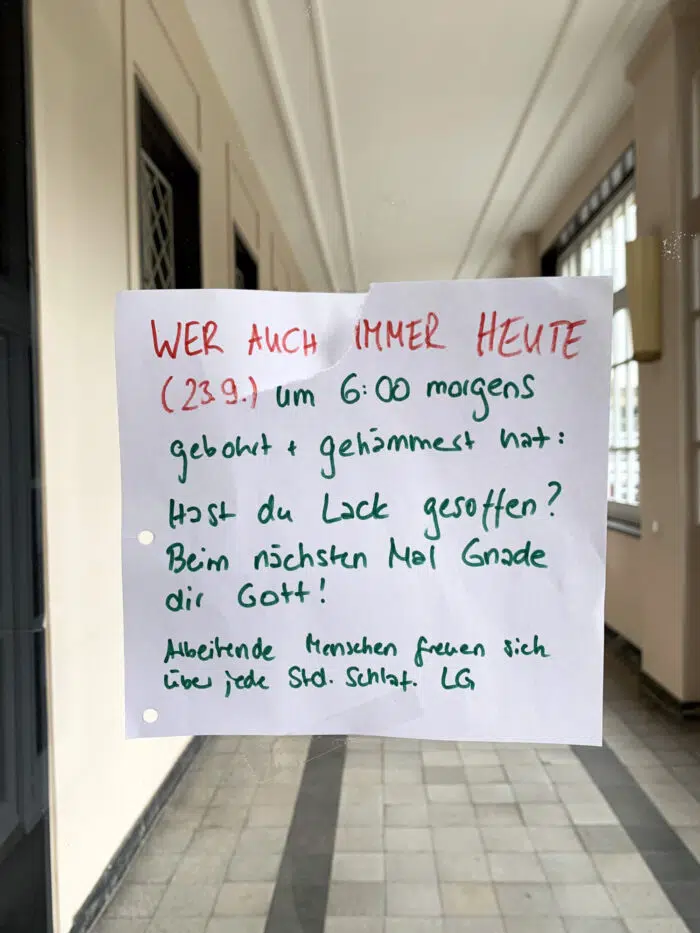 WER AUCH IMMER HEUTE
(23.9.) um 6:00 morgens
gebohrt + gehämmert hat:
Hast du Lack gesoffen?
Beim nächsten Mal Gnade
dir Gott!
Arbeitende Menschen freuen sich
über jede Std. Schlaf. LG